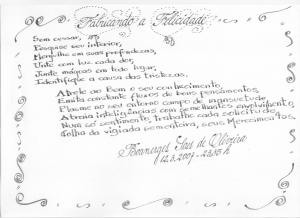 Fabricando a Felicidade
Sem cessar,
Pesquise seu interior,
Mergulhe em suas profundezas,
Unte com luz cada dor,
Junte mágoas em todo lugar,
Identifique a causa das tristezas.
Atrele ao Bem o seu conhecimento,
Emita constante fluxos de bons pensamentos,
Plasme no seu entorno campo de mansuetude
Atraia inteligências com semelhantes
Num só sentimento, trabalhe cada solicitude
Colha da vigiada sementeira, seus Merecimentos.
de Oliveira
12.3.2007 -